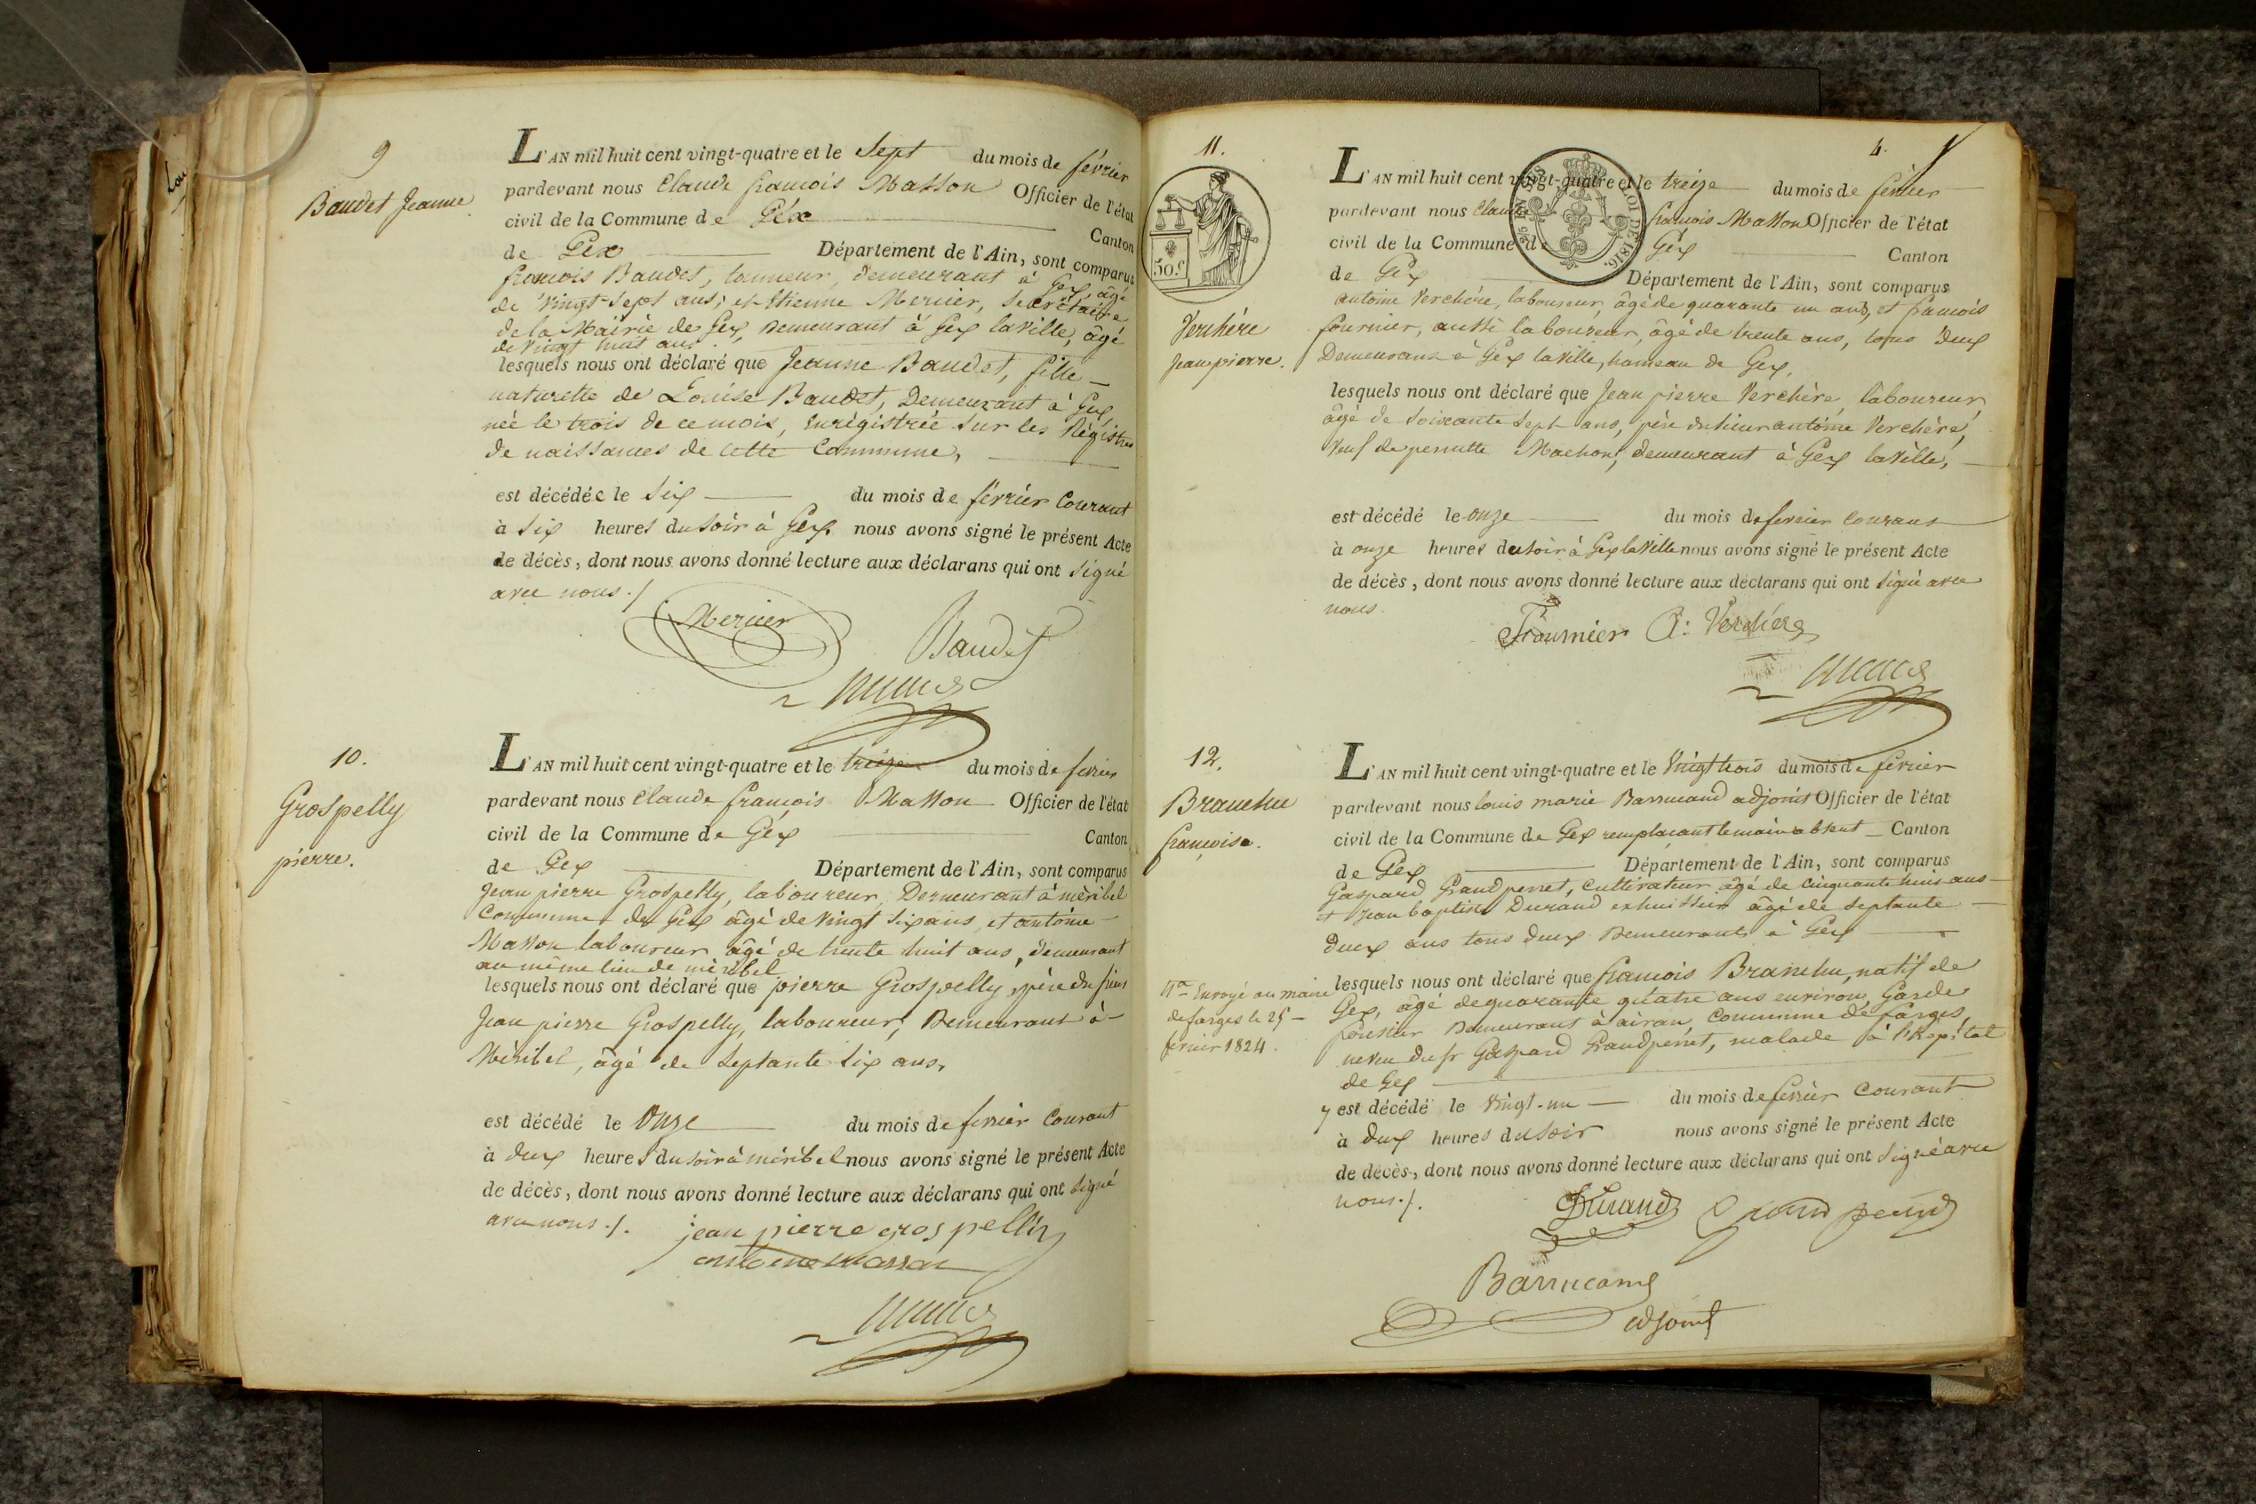 9
Baudet Jeanne.
L'AN mil huit cent vingt-quatre et le Sept du mois de février
pardevant nous Claude françois Masson Officier de l'état
civil de la Commune de Géx Canton
de Gex Département de l'Ain, sont comparus
françois Baudet, tanneur, demeurant à Gex, âgé
de vingt-sept ans; et Etienne Mercier, Secrétaire
de la Mairie de Gex, Demeurant à Gex laville, âgé
de vingt huit ans.
lesquels nous ont déclaré que Jeanne Baudet, fille
naturelle de Louise Baudet, Demeurant à Gex,
née le trois de ce mois, enrégistrée sur les Régistres
de naissances de cette Commune,
est décédée le Six du mois de février Courant
à six heures du soir à Gex nous avons signé le présent Acte
de décès, dont nous avons donné lecture aux déclarans qui ont signé
avec nous./
Mercier
Baudet
10.
Grospelly
pierre.
L'AN mil huit cent vingt-quatre et le treize du mois de fevrier
pardevant nous Claude françois Masson Officier de l'état
civil de la Commune de Géx Canton
de Gex Département de l'Ain, sont comparus
Jean pierre Grospelly, laboureur, Demeurant à méribel
Commune de Gex âgé de vingt six ans, et antoine
Masson laboureur âgé de trente huit ans, demeurant
au même lieu de méribel
lesquels nous ont déclaré que pierre Grospelly, père du sieur
Jean pierre Grospelly, laboureur, Demeurant à
Méribel, âgé de Septante six ans,
est décédé le Onze du mois de fevrier Courant
à deux heures du soir à méribel nous avons signé le présent Acte
de décès, dont nous avons donné lecture aux déclarans qui ont signé
avec nous./.
jean pierre grospellÿ
antoine masson
4.
11.
50.c
25 EN SUS
LOI DE 1816.
Verchère
Jean pierre.
L'AN mil huit cent vingt-quatre et le treize du mois de février
pardevant nous Claude françois Masson Officier de l'état
civil de la Commune de Géx Canton
de Gex Département de l'Ain, sont comparus
antoine Verchère, laboureur, âgé de quarante un ans, et françois
fournier, aussi laboureur, âgé de trente ans, tous deux
Demeurans à Gex laville, hameau de Gex,
lesquels nous ont déclaré que Jean pierre Verchère, laboureur,
âgé de Soixante sept ans, père du sieur antoine Verchère,
Veuf de pernette Machon, demeurant à Gex laville,
est décédé le onze du mois de fevrier courant
à onze heures du soir à Gex laville nous avons signé le présent Acte
de décès, dont nous avons donné lecture aux déclarans qui ont signé avec
nous.
Fournier A: Verchère
12.
Branchu
françois.
L'AN mil huit cent vingt-quatre et le Vingt trois du mois de février
pardevant nous louis marie Barrucand adjoint Officier de l'état
civil de la Commune de Gex remplaçant le maire absent Canton
de Gex Département de l'Ain, sont comparus
Gaspard Grandperret, cultivateur âgé de cinquante huit ans
et jean baptiste Durand exhuissier âgé de septante
deux ans tous deux Demeurants à Gex
lesquels nous ont déclaré que françois Branchu, natif de
Gex, âgé de quarante quatre ans environ, Garde
forestier Demeurant à airan, Commune de farges,
neveu du sr Gaspard Grandperret, malade à l'hopital
de Gex
y est décédé le vingt-un du mois de février Courant
à deux heures du soir nous avons signé le présent Acte
de décès, dont nous avons donné lecture aux déclarans qui ont signé avec
nous./.
Envoyé au maire
de farges le 25
fevrier 1824.
Durand
Grandperret
Barrucand
adjoint